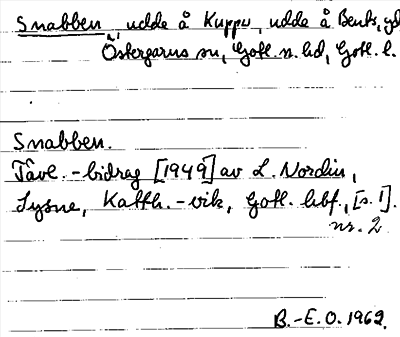 Snabben, udde å Kuppu, udde å Bents, yd
i Östergarns sn, Gotl. n. hd, Gotl. l.
Snabben.
Tävl.-bidrag [1949] av L. Nordin,
Lysne, Katth.-vik, Gotl. hbf., [s. 1].
nr. 2
B.-E.O. 1962.